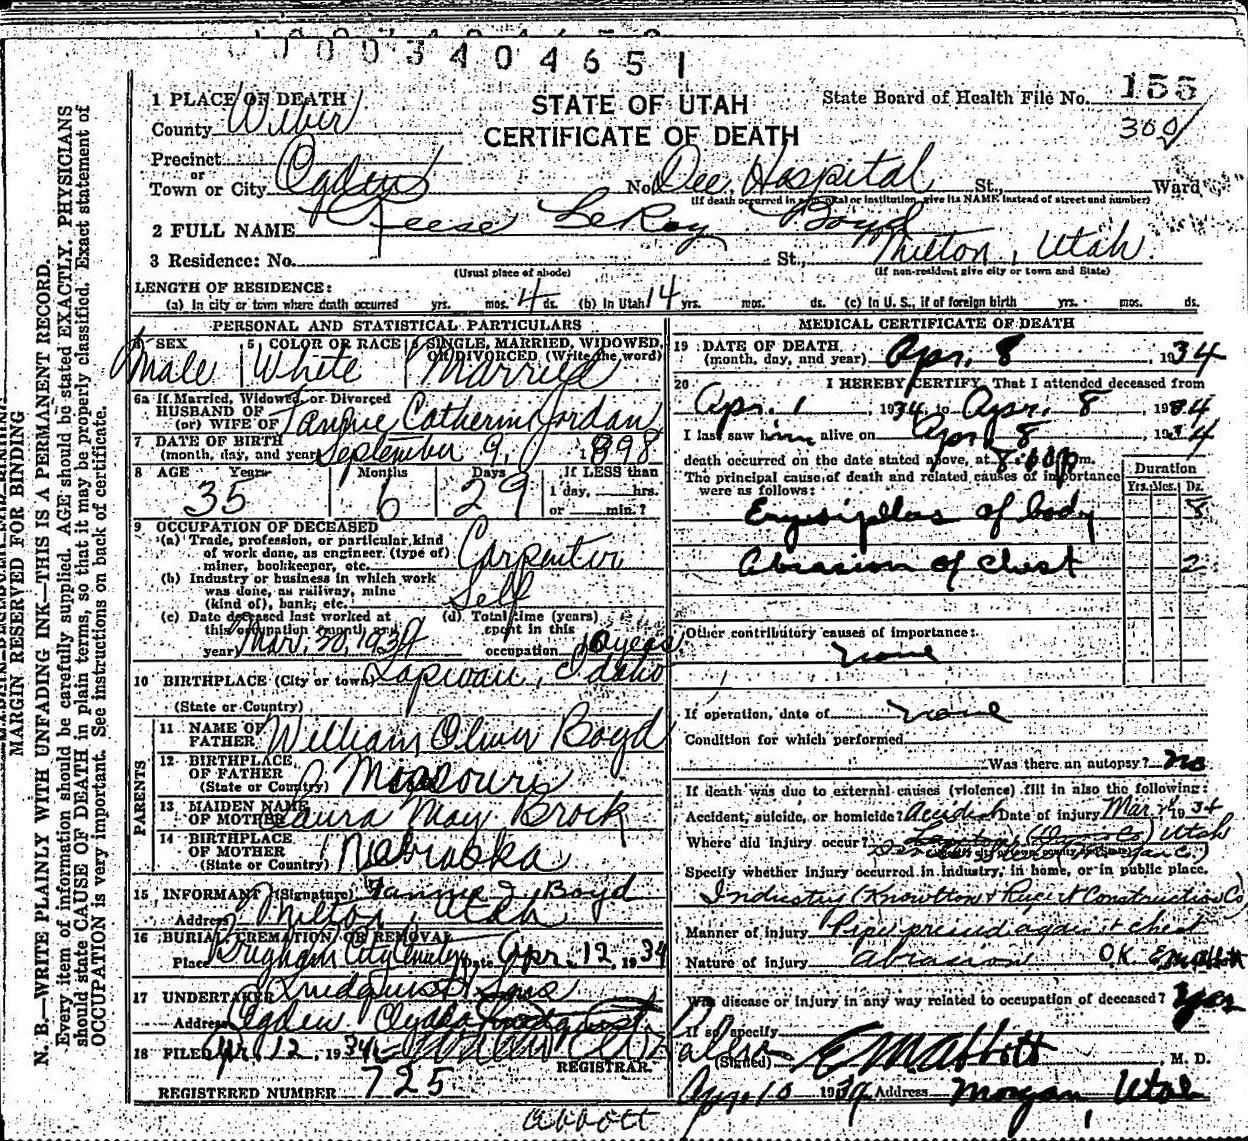 1 0 0 3 4 0 4 6 5 1
1 PLACE OF DEATH
STATE OF UTAH
CERTIFICATE OF DEATH
State Board of Health File No. 155
300
County Weber
Precinct
or
Town or City Ogden No. Dee Hospital St., Ward
(If death occurred in a hospital or institution, give its NAME instead of street and number)
2 FULL NAME Reese LeRoy Boyd
3 Residence: No. St., Milton, Utah.
(Usual place of abode) (If non-resident give city or town and State)
LENGTH OF RESIDENCE:
(a) In city or town where death occurred yrs. mos. 4 ds. (b) In Utah 14 yrs. mos. ds. (c) In U. S., if of foreign birth yrs. mos. ds.
PERSONAL AND STATISTICAL PARTICULARS
4 SEX Male
5 COLOR OR RACE White
6 SINGLE, MARRIED, WIDOWED, OR DIVORCED (Write the word) Married
6a If Married, Widowed, or Divorced
HUSBAND OF
(or) WIFE OF Fannie Catherine Jordan
7 DATE OF BIRTH
(month, day, and year) September 9, 1898
8 AGE Years 35 Months 6 Days 29 If LESS than
1 day, hrs.
or min.?
9 OCCUPATION OF DECEASED
(a) Trade, profession, or particular kind
of work done, as engineer, (type of)
miner, bookkeeper, etc. Carpenter
(b) Industry or business in which work
was done, as railway, mine
(kind of), bank, etc. Self
(c) Date deceased last worked at
this occupation (month and
year) Mar, 30, 1934
(d) Total time (years)
spent in this
occupation 10 years
10 BIRTHPLACE (City or town) Lapwai, Idaho
(State or Country)
PARENTS
11 NAME OF
FATHER William Oliver Boyd
12 BIRTHPLACE
OF FATHER Missouri
(State or Country)
13 MAIDEN NAME
OF MOTHER Laura May Brock
14 BIRTHPLACE
OF MOTHER Nebraska
(State or Country)
15 INFORMANT (Signature) Fannie J. Boyd
Address Milton, Utah
16 BURIAL, CREMATION OR REMOVAL
Place Brigham City Cemetery Date Apr. 12, 1934
17 UNDERTAKER Lindquist & Sons
Address Ogden Clyde Lindquist
18 FILED Apr. 12, 1934
REGISTRAR.
REGISTERED NUMBER 725
MEDICAL CERTIFICATE OF DEATH
19 DATE OF DEATH
(month, day, and year) Apr. 8 1934
20 I HEREBY CERTIFY, That I attended deceased from
Apr. 1, 1934 to Apr. 8, 1934
I last saw him alive on Apr. 8, 1934
death occurred on the date stated above, at m.
The principal cause of death and related causes of importance
were as follows:
Duration
Yrs. Mos. Ds.
Erysipelas of body 8
Abrasion of chest 2
Other contributory causes of importance:
none
If operation, date of none
Condition for which performed
Was there an autopsy? No
If death was due to external causes (violence) fill in also the following:
Accident, suicide, or homicide? Accident Date of injury Mar 1934
Where did injury occur? (Davis Co) Utah
Specify whether injury occurred in industry, in home, or in public place.
Industry (Knowlton & Rupert Construction Co)
Manner of injury Pipe pressed against chest
Nature of injury abrasion O.K. E.M. Abbott
Was disease or injury in any way related to occupation of deceased? Yes
If so, specify
(Signed) E M Abbott, M. D.
Apr. 10 1934 Address Morgan, Utah
abbott
N. B.—WRITE PLAINLY WITH UNFADING INK—THIS IS A PERMANENT RECORD.
MARGIN RESERVED FOR BINDING
Every item of information should be carefully supplied. AGE should be stated EXACTLY. PHYSICIANS
should state CAUSE OF DEATH in plain terms, so that it may be properly classified. Exact statement of
OCCUPATION is very important. See instructions on back of certificate.